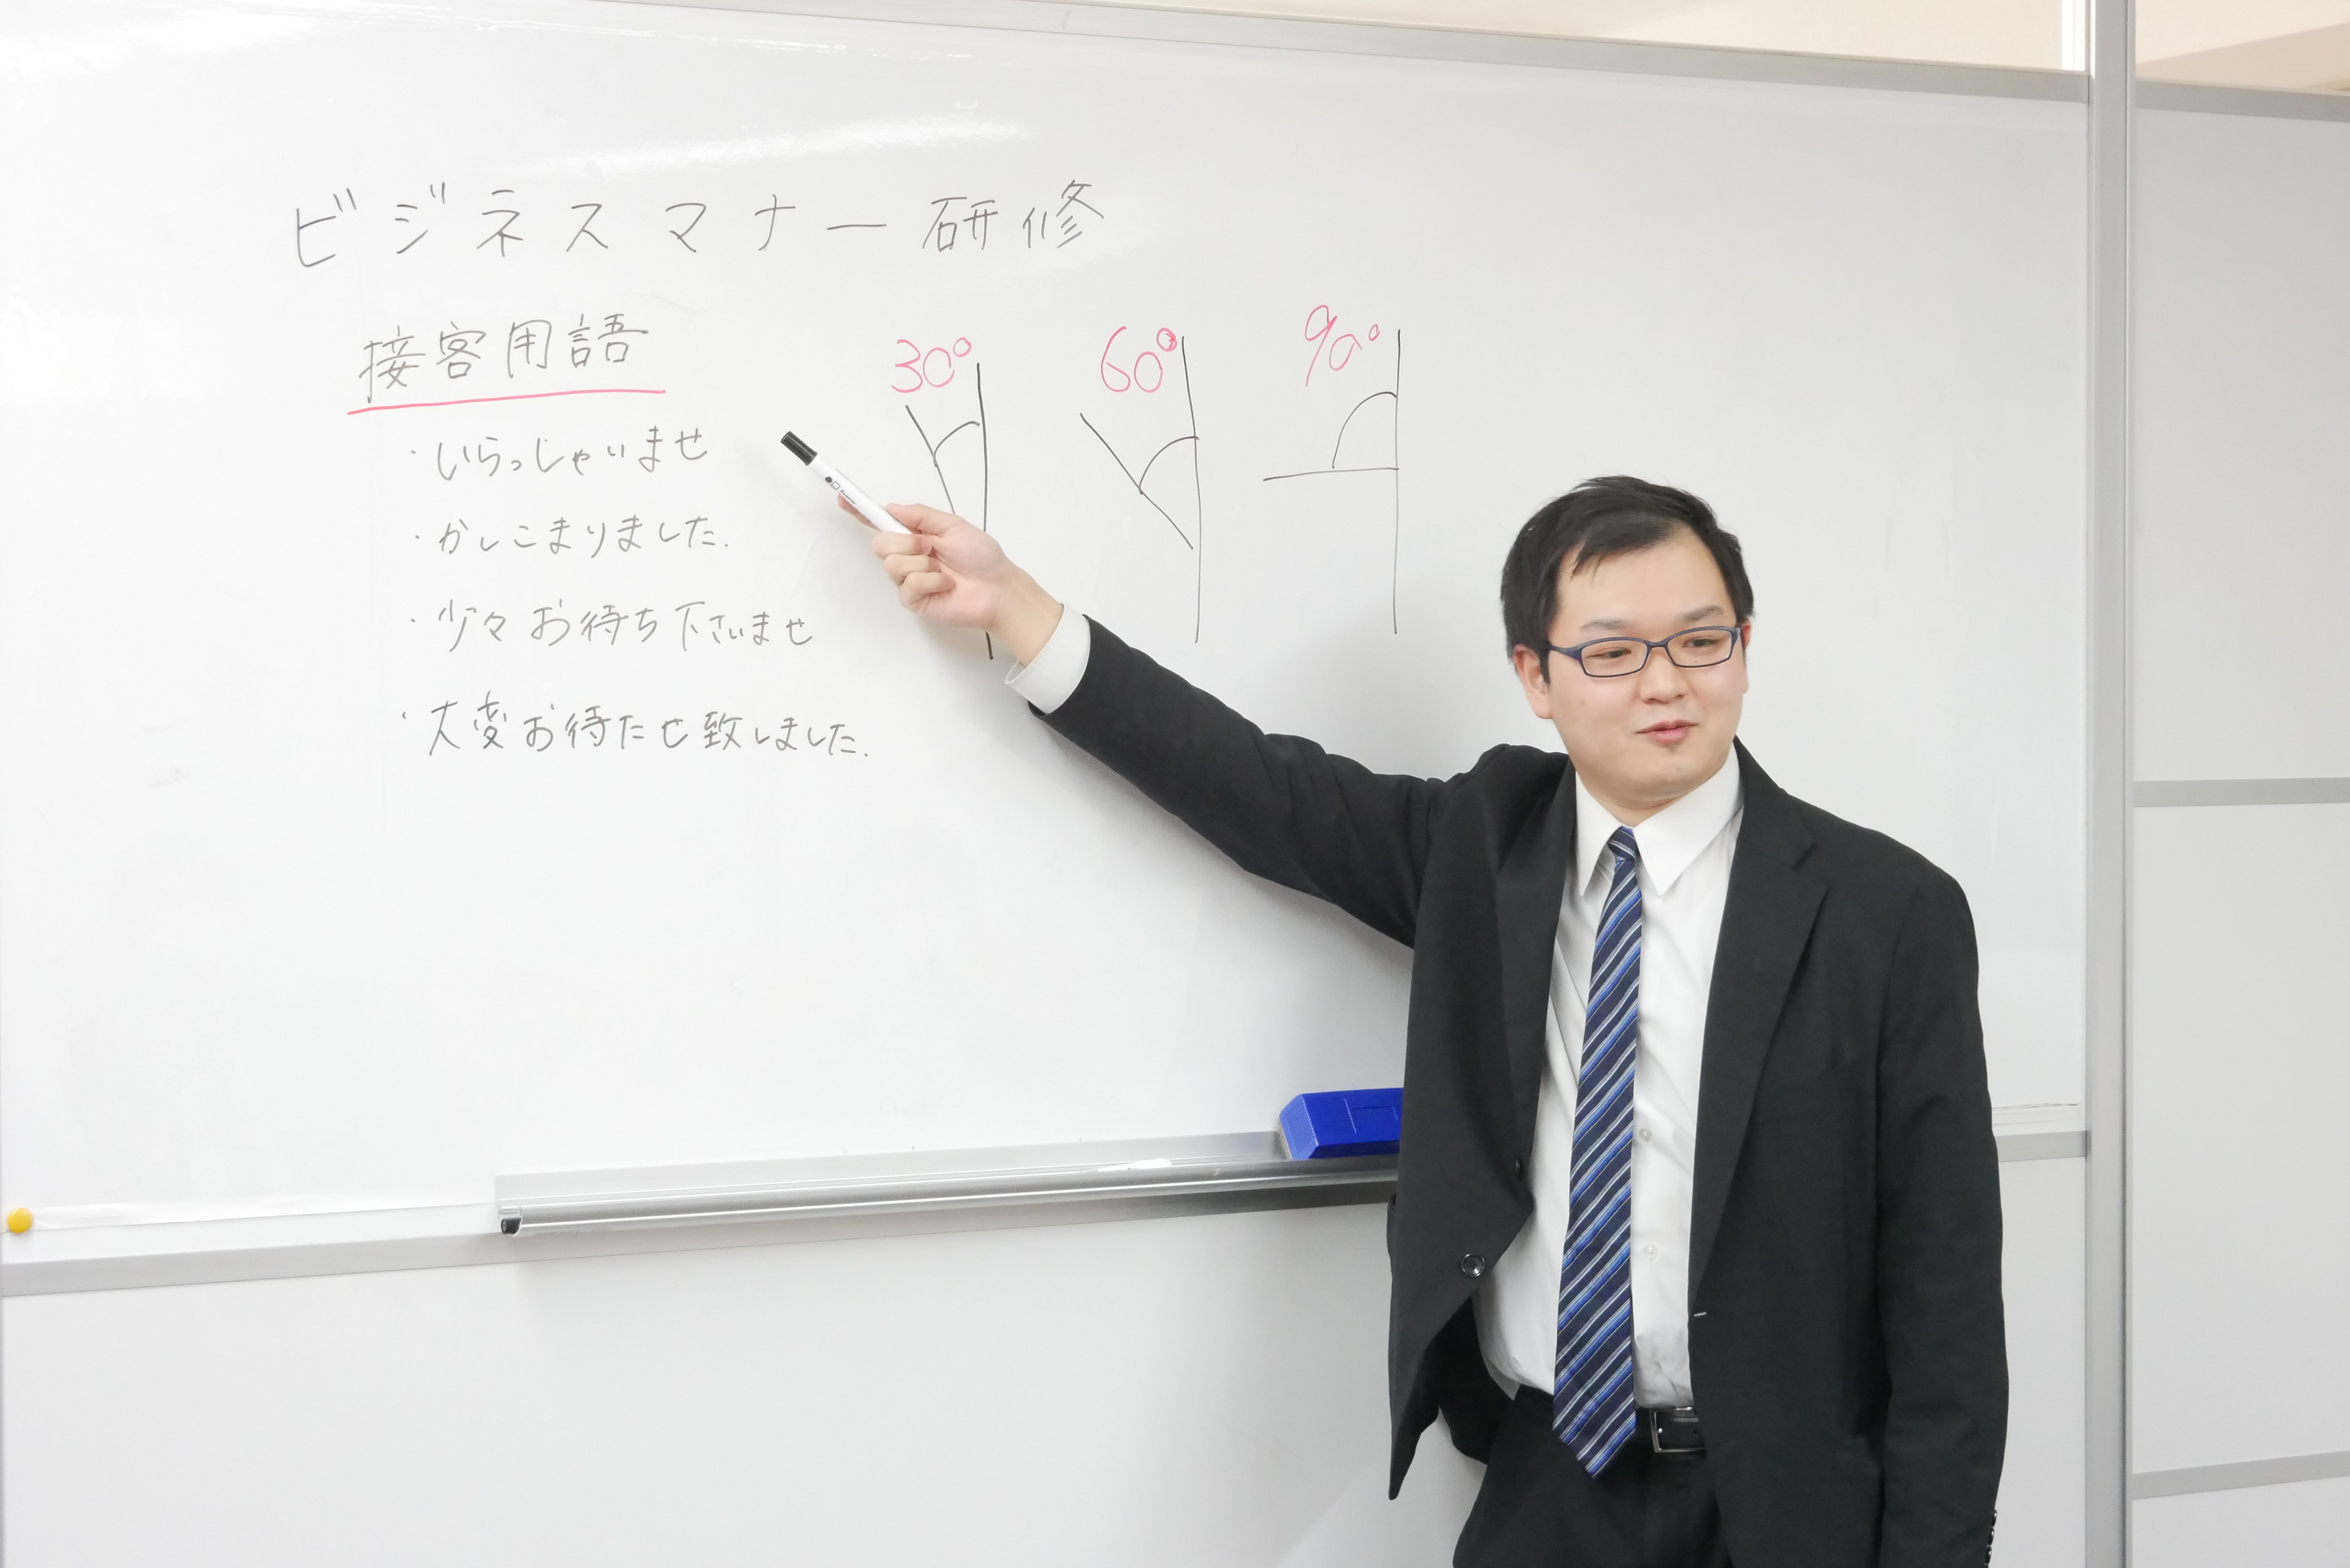 ビジネスマナー研修
接客用語
・いらっしゃいませ
・かしこまりました.
・少々お待ち下さいませ
・大変お待たせ致しました.
30° 60° 90°